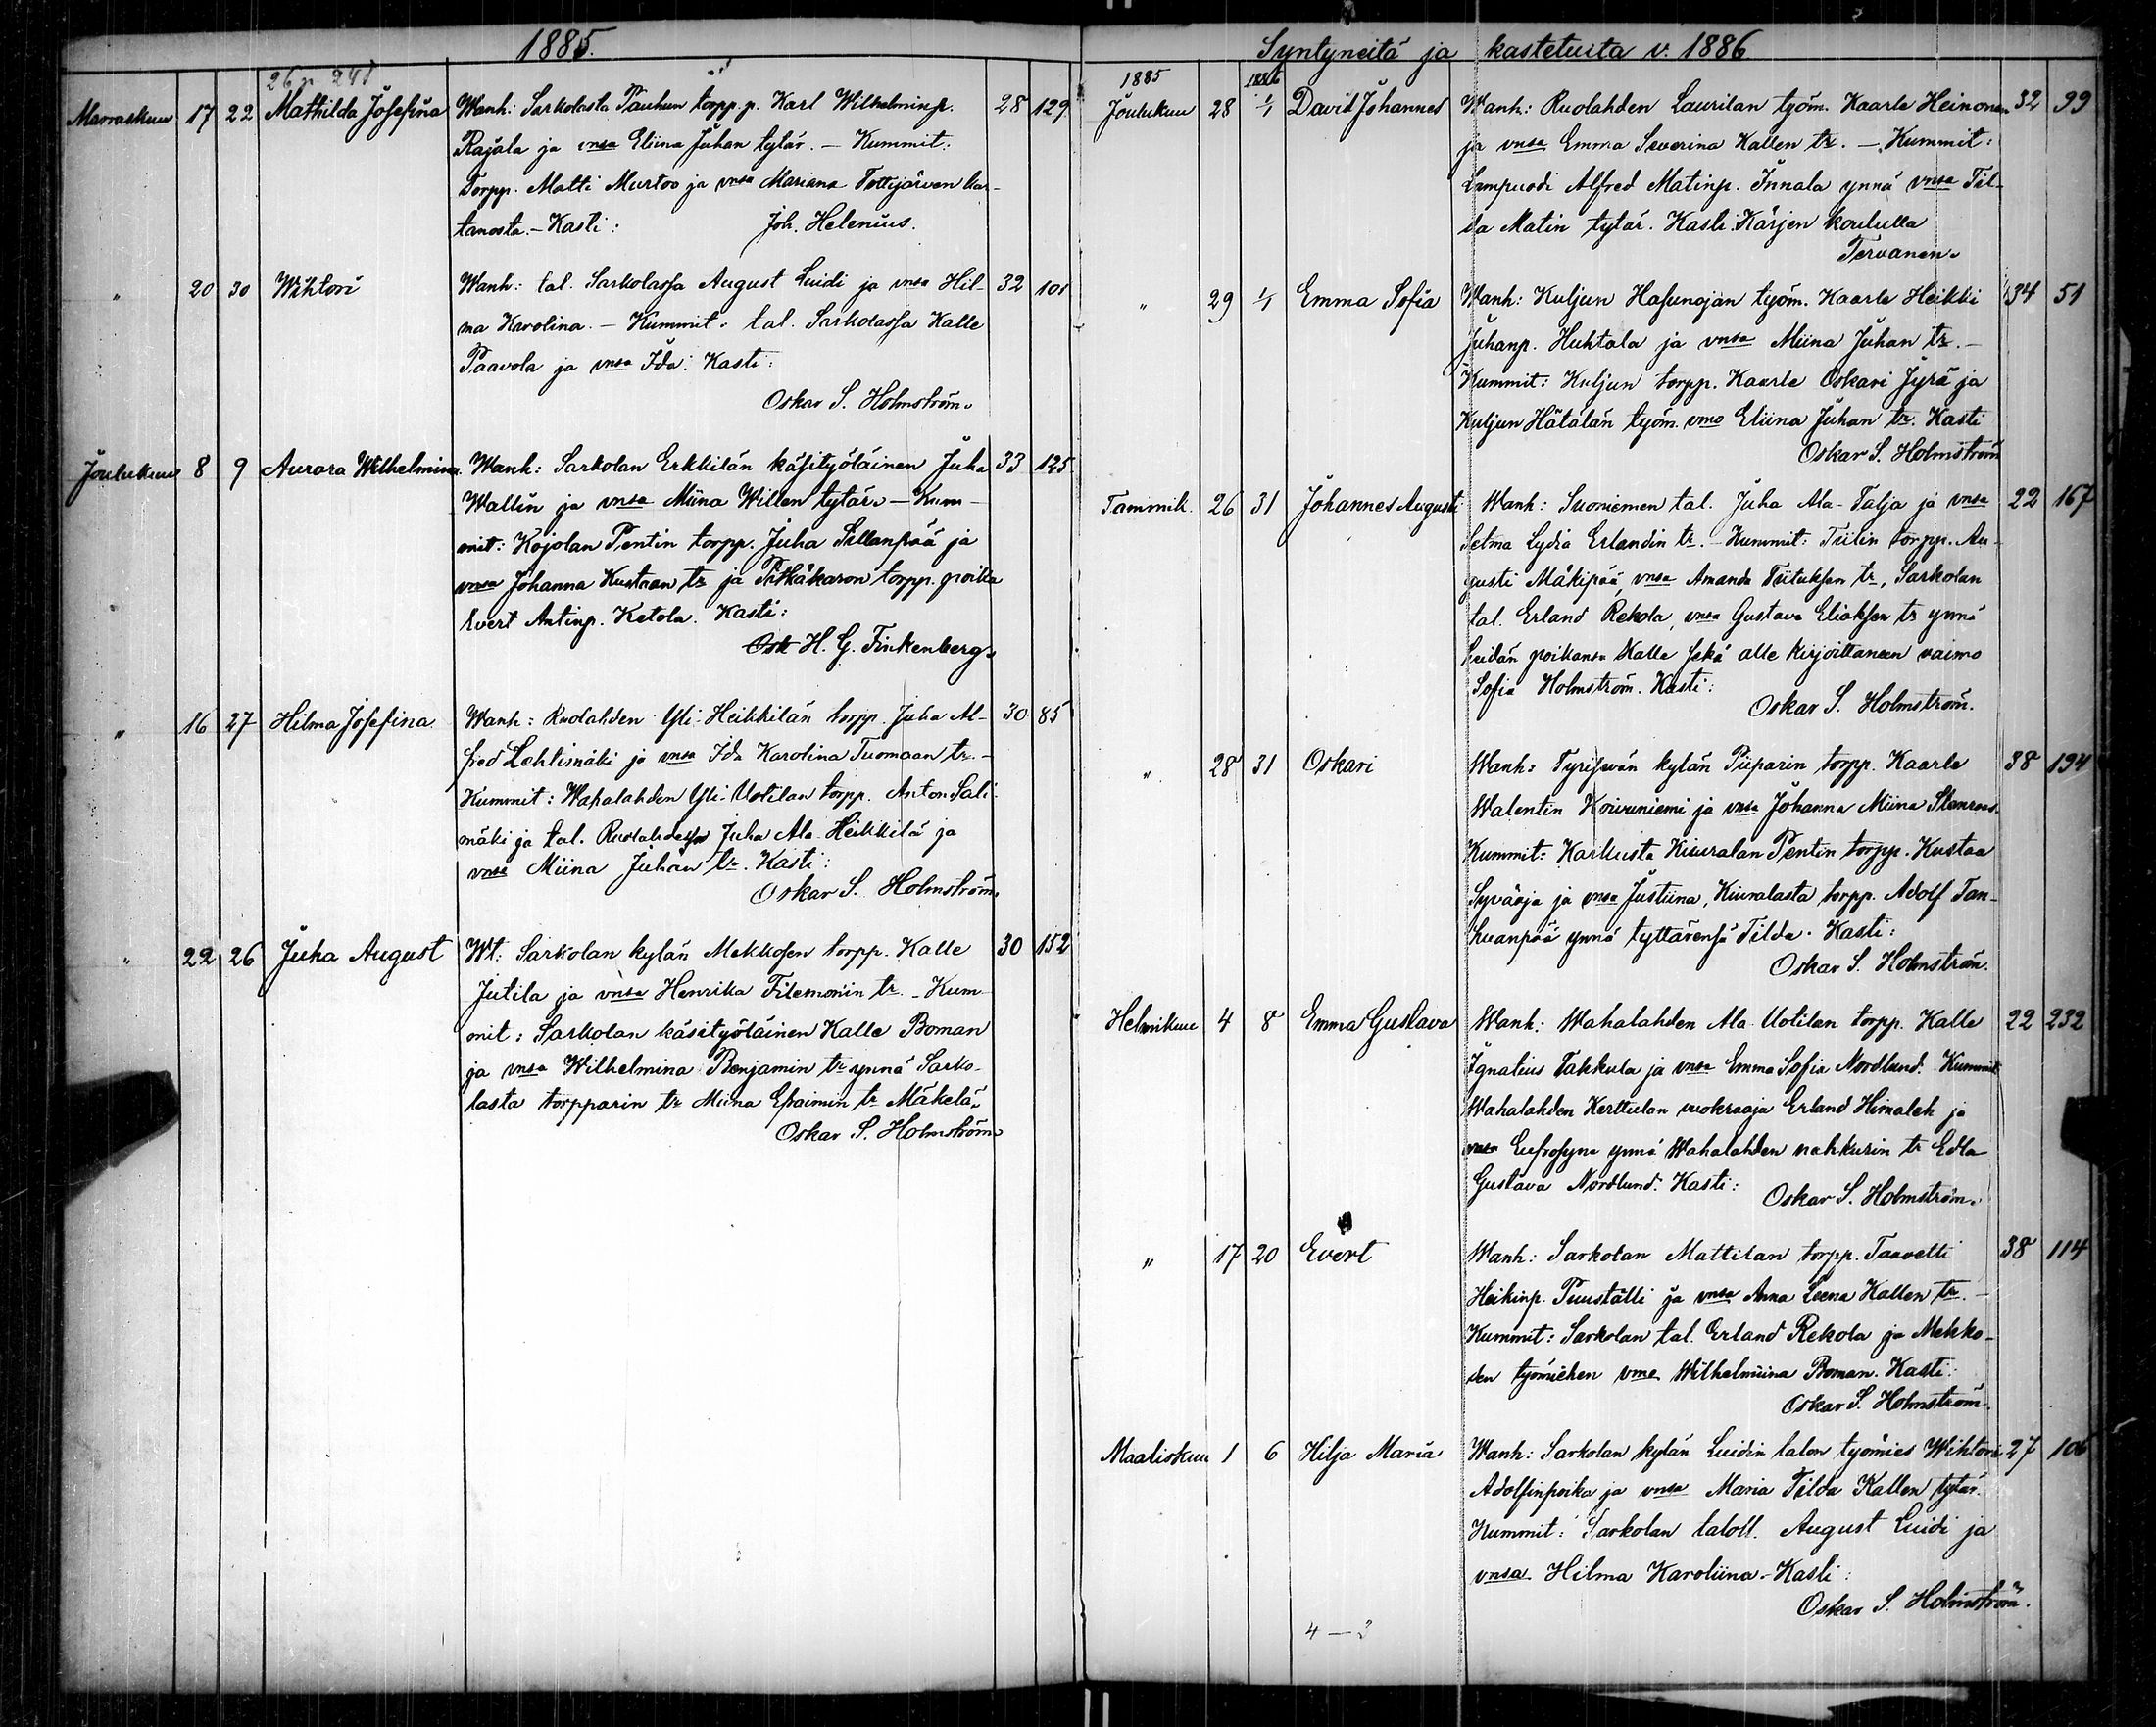 1885.
26 p. 241
Marraskuu 17 22 Mathilda Josefina Wanh: Sarkolasta Pauhun torpp. p. Karl Wilhelminp. 28 129
Rajala ja vnsa Eliina Juhan tytär. — Kummit:
Torpp. Matti Murtoo ja vnsa Mariana Tottijärven kar-
tanosta. — Kasti: Joh. Helenius.
" 20 30 Wihtori Wanh: tal. Sarkolassa August Luidi ja vnsa Hil- 32 101
ma Karolina. — Kummit: tal. Sarkolassa Kalle
Paavola ja vnsa Ida. Kasti:
Oskar S. Holmström.
Joulukuu 8 9 Aurora Wilhelmina Wanh: Sarkolan Erkkilän käsityöläinen Juha 33 125
Wallin ja vnsa Miina Willen tytär. — Kum-
mit: Kojolan Pentin torpp. Juha Sillanpää ja
vnsa Johanna Kustaan tr ja Pitkäkaron torpp. poika
Evert Antinp. Ketola. Kasti:
Osk H. G. Finkenberg.
" 16 27 Hilma Josefina Wanh: Ruolahden Yli-Heikkilän torpp. Juha Al- 30 85
fred Lehtimäki ja vnsa Ida Karolina Tuomaan tr. —
Kummit: Wahalahden Yli-Uotilan torpp. Anton Sali-
mäki ja tal. Ruolahdessa Juha Ala-Heikkilä ja
vnsa Miina Juhan tr. Kasti:
Oskar S. Holmström.
" 22 26 Juha August Wt: Sarkolan kylän Mekkosen torpp. Kalle 30 152
Jutila ja vnsa Henrika Filemonin tr. — Kum-
mit: Sarkolan käsityöläinen Kalle Boman
ja vnsa Wilhelmina Benjamin tr ynnä Sarko-
lasta torpparin tr Miina Efraimin tr Mäkelä.
Oskar S. Holmström
Syntyneitä ja kastetuita v. 1886
1885 1886
Joulukuu 28 1/1 David Johannes Wanh: Ruolahden Laurilan työm. Kaarle Heinonen 32 99
ja vnsa Emma Severina Kallen tr. — Kummit:
Lampuodi Alfred Matinp. Innala ynnä vnsa Til-
da Matin tytär. Kasti Kärjen koululla
Tervanen.
" 29 1/1 Emma Sofia Wanh: Kuljun Hasunojan työm. Kaarle Heikki 34 51
Juhanp. Huhtala ja vnsa Miina Juhan tr. —
Kummit: Kuljun torpp. Kaarle Oskari Jyrä ja
Kuljun Hätälän työm. vmo Eliina Juhan tr. Kasti
Oskar S. Holmström
Tammik. 26 31 Johannes Augusti Wanh: Suoniemen tal. Juha Ala-Talja ja vnsa 22 167
Selma Lydia Erlandin tr. — Kummit: Tiilin torpp. Au-
gusti Mäkipää, vnsa Amanda Tiituksen tr, Sarkolan
tal. Erland Rekola, vnsa Gustava Eliaksen tr ynnä
heidän poikansa Kalle sekä alle kirjoittaneen vaimo
Sofia Holmström. Kasti:
Oskar S. Holmström.
" 28 31 Oskari Wanh: Tyrisevän kylän Piiparin torpp. Kaarle 38 194
Walentin Koivuniemi ja vnsa Johanna Miina
Kummit: Karkusta Kiuralan Pentin torpp. Kustaa
Syväoja ja vnsa Justiina, Kiuralasta torpp. Adolf Tan-
huanpää ynnä tyttärensä Tilda. Kasti:
Oskar S. Holmström.
Helmikuu 4 8 Emma Gustava Wanh: Wahalahden Ala-Uotilan torpp. Kalle 22 232
Ignatius Takkula ja vnsa Emma Sofia Nordlund. Kummit
Wahalahden Kerttulan vuokraaja Erland Himaleh ja
vnsa Eufrosyna ynnä Wahalahden nahkurin tr Edla
Gustava Nordlund. Kasti: Oskar S. Holmström.
" 17 20 Evert Wanh: Sarkolan Mattilan torpp. Taavetti 38 114
Heikinp. Puuställi ja vnsa Anna Leena Kallen tr. —
Kummit: Sarkolan tal. Erland Rekola ja Mekko-
sen työmiehen vmo Wilhelmiina Boman. Kasti:
Oskar S. Holmström.
Maaliskuu 1 6 Hilja Maria Wanh: Sarkolan kylän Luidin talon työmies Wihtori 27 106
Adolfinpoika ja vnsa Maria Tilda Kallen tytär.
Kummit: Sarkolan taloll. August Luidi ja
vnsa Hilma Karoliina. — Kasti:
Oskar S. Holmström.
4 — 3